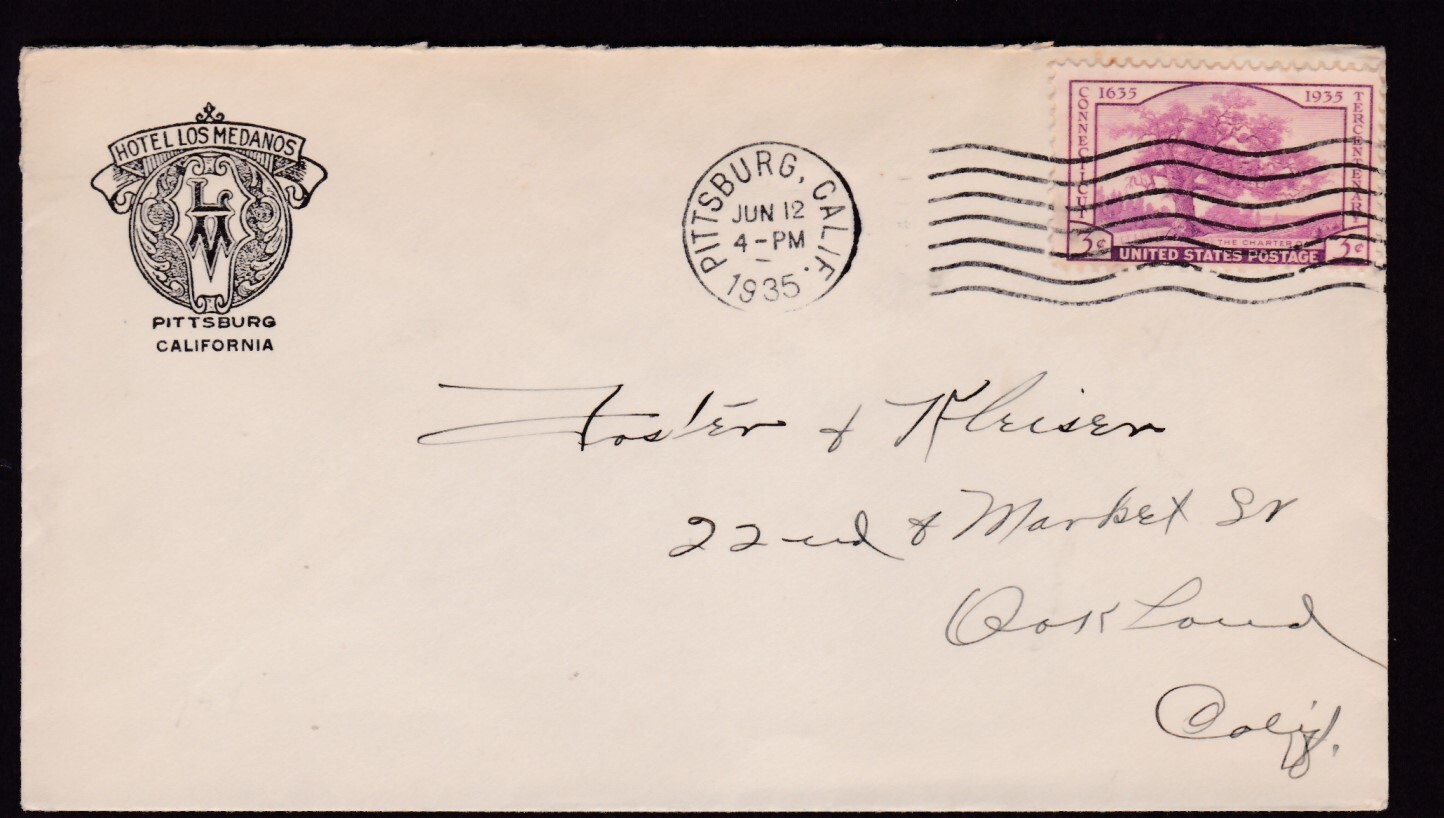 HOTEL LOS MEDANOS
LM
PITTSBURG
CALIFORNIA
PITTSBURG, CALIF.
JUN 12
4-PM
1935
1635 1935
CONNECTICUT
TERCENTENARY
THE CHARTER O
3¢ 3¢
UNITED STATES POSTAGE
Foster & Kleiser
22nd & Market St
Oakland
Calif.